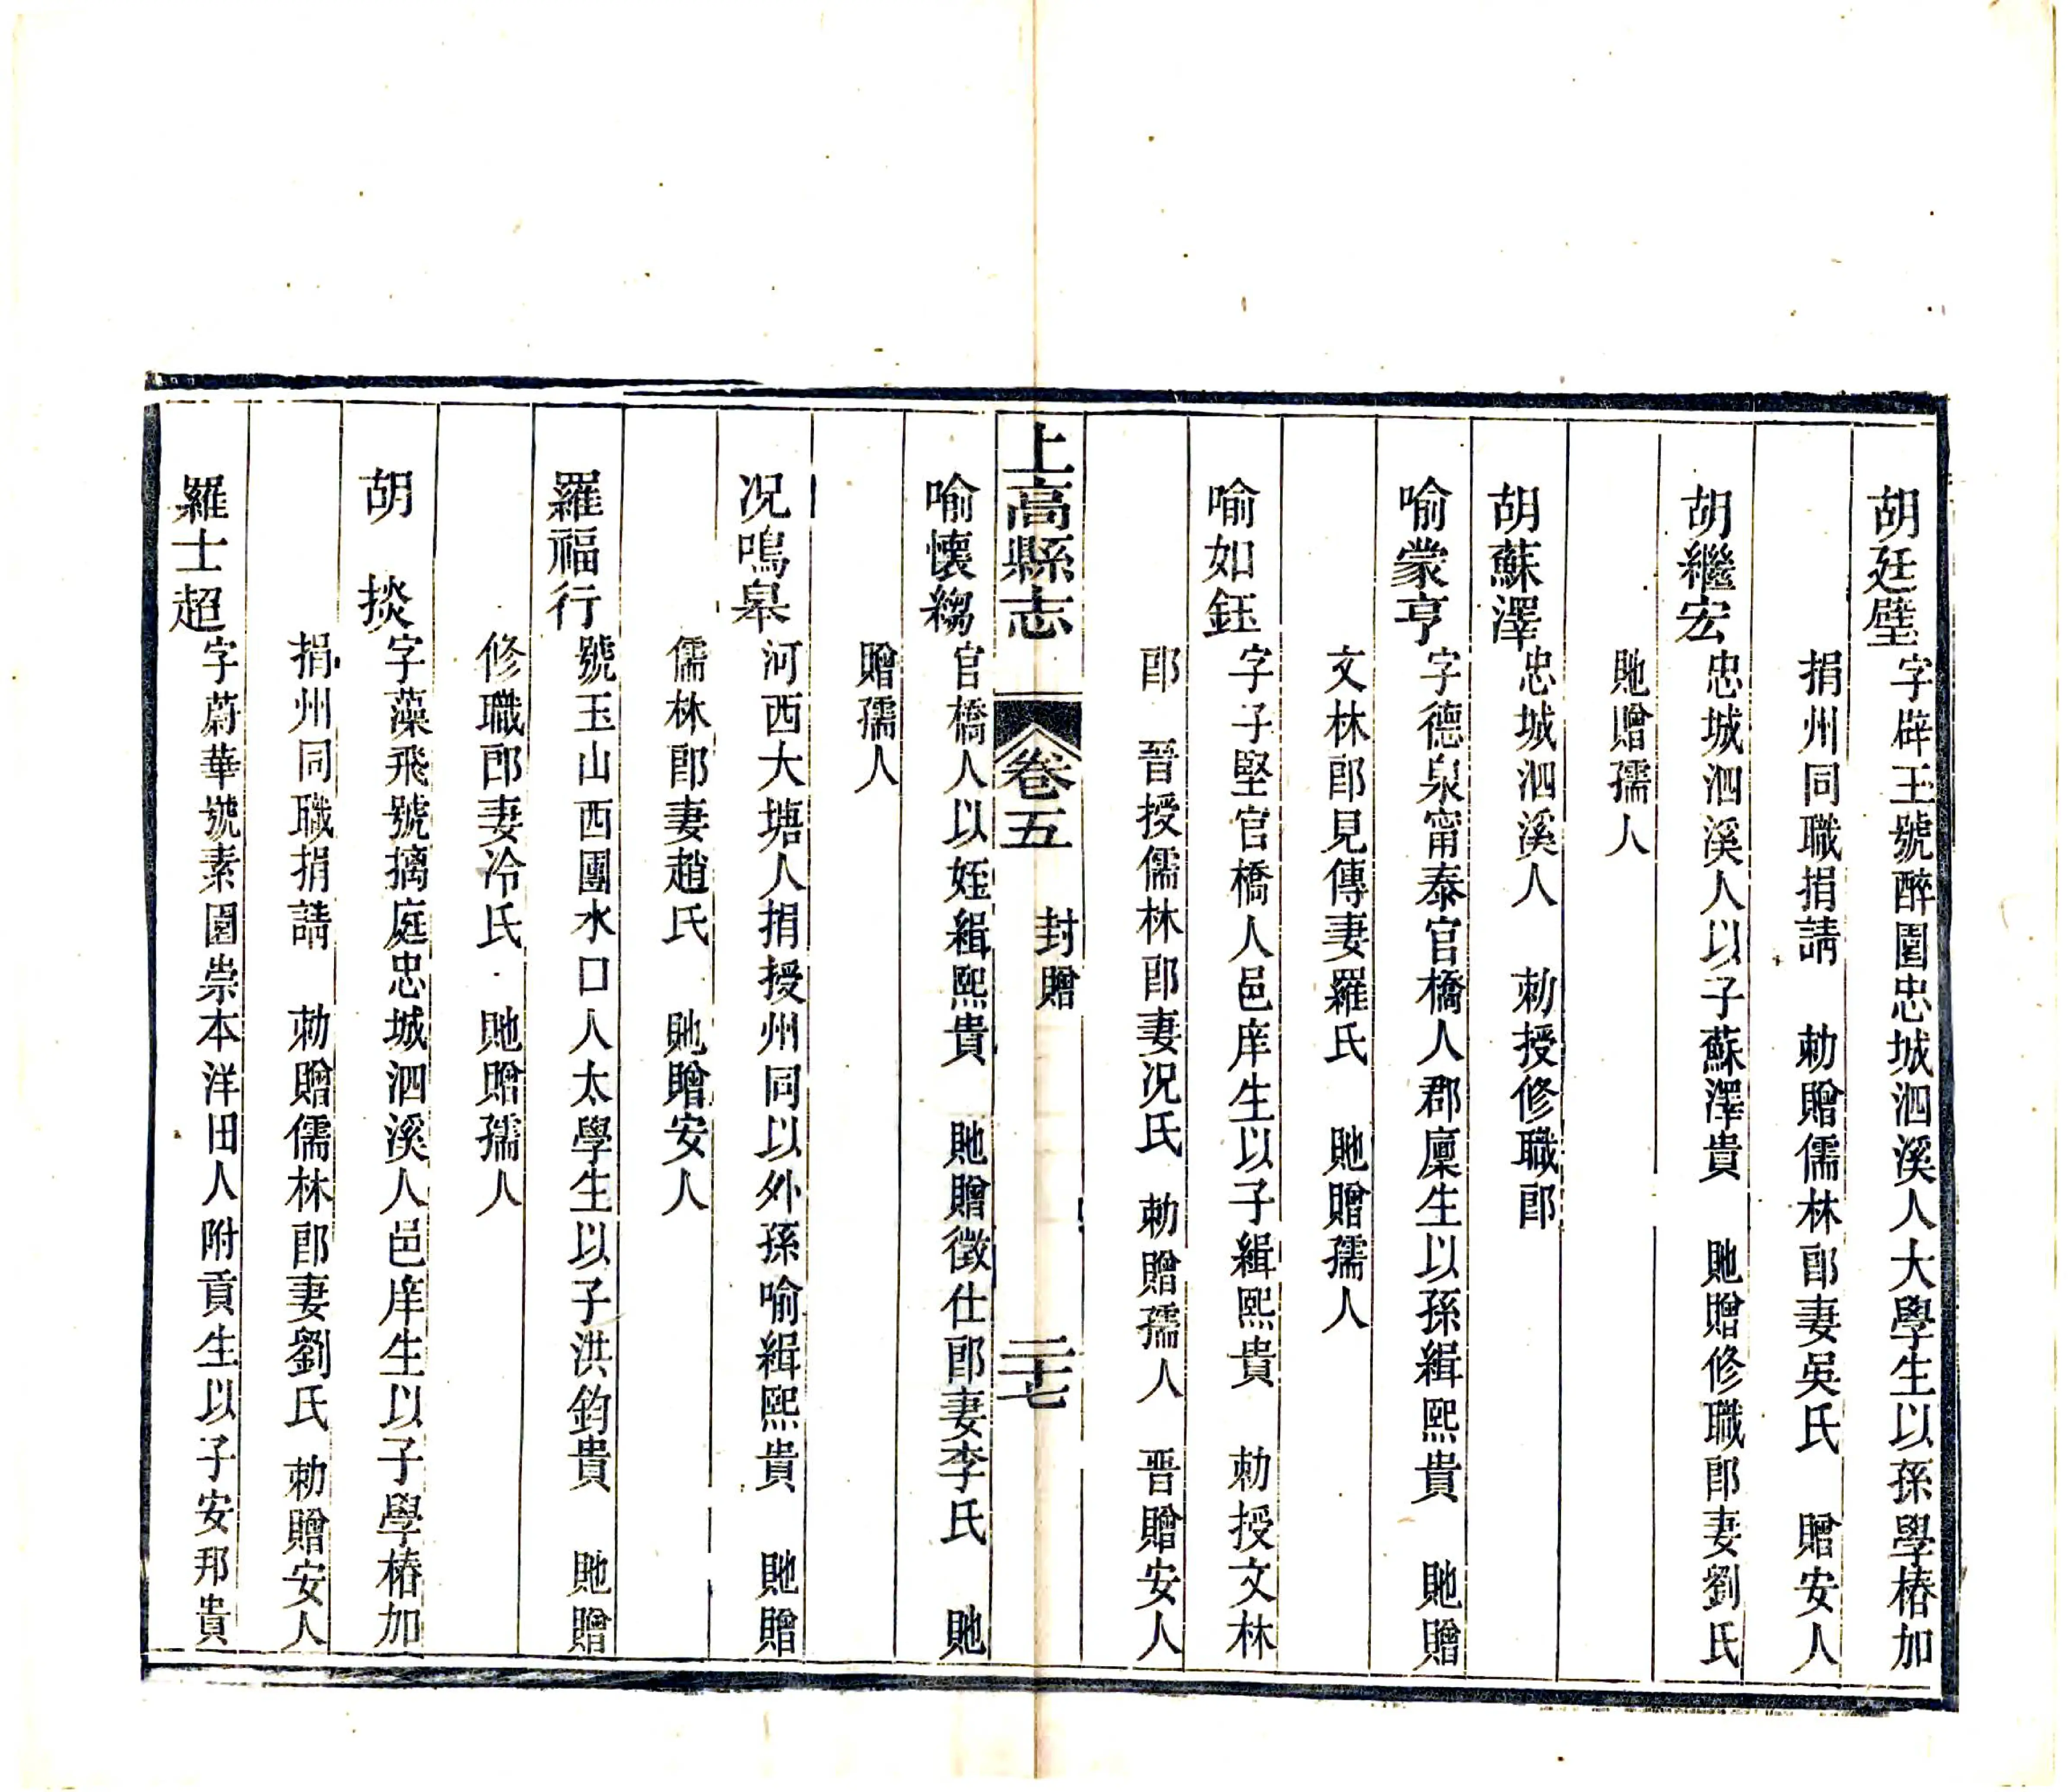 胡廷璧字辟王號醉園忠城泗溪人大學生以孫學椿加
捐州同職捐請 勅贈儒林郎妻吳氏 贈安人
胡繼宏忠城泗溪人以子蘇澤貴 貤贈修職郎妻劉氏
貤贈孺人
胡蘇澤忠城泗溪人 勅授修職郎
喻蒙亨字德泉甯泰官橋人郡廩生以孫緝熙貴 貤贈
文林郎見傳妻羅氏 貤贈孺人
喻如鈺字子堅官橋人邑庠生以子緝熙貴 勅授文林
郎 晉授儒林郎妻况氏 勅贈孺人 晋贈安人
上高縣志 卷五 封贈 二十七
喻懷縐官橋人以姪緝熙貴 貤贈徵仕郎妻李氏 貤
贈孺人
况鳴皋河西大塘人捐授州同以外孫喻緝熙貴 貤贈
儒林郎妻趙氏 貤贈安人
羅福行號玉山西團水口人太學生以子洪鈞貴 貤贈
修職郎妻冷氏 貤贈孺人
胡 掞字藻飛號摛庭忠城泗溪人邑庠生以子學椿加
捐州同職捐請 勅贈儒林郎妻劉氏 勅贈安人
羅士超字蔚華號素園崇本洋田人附貢生以子安邦貴